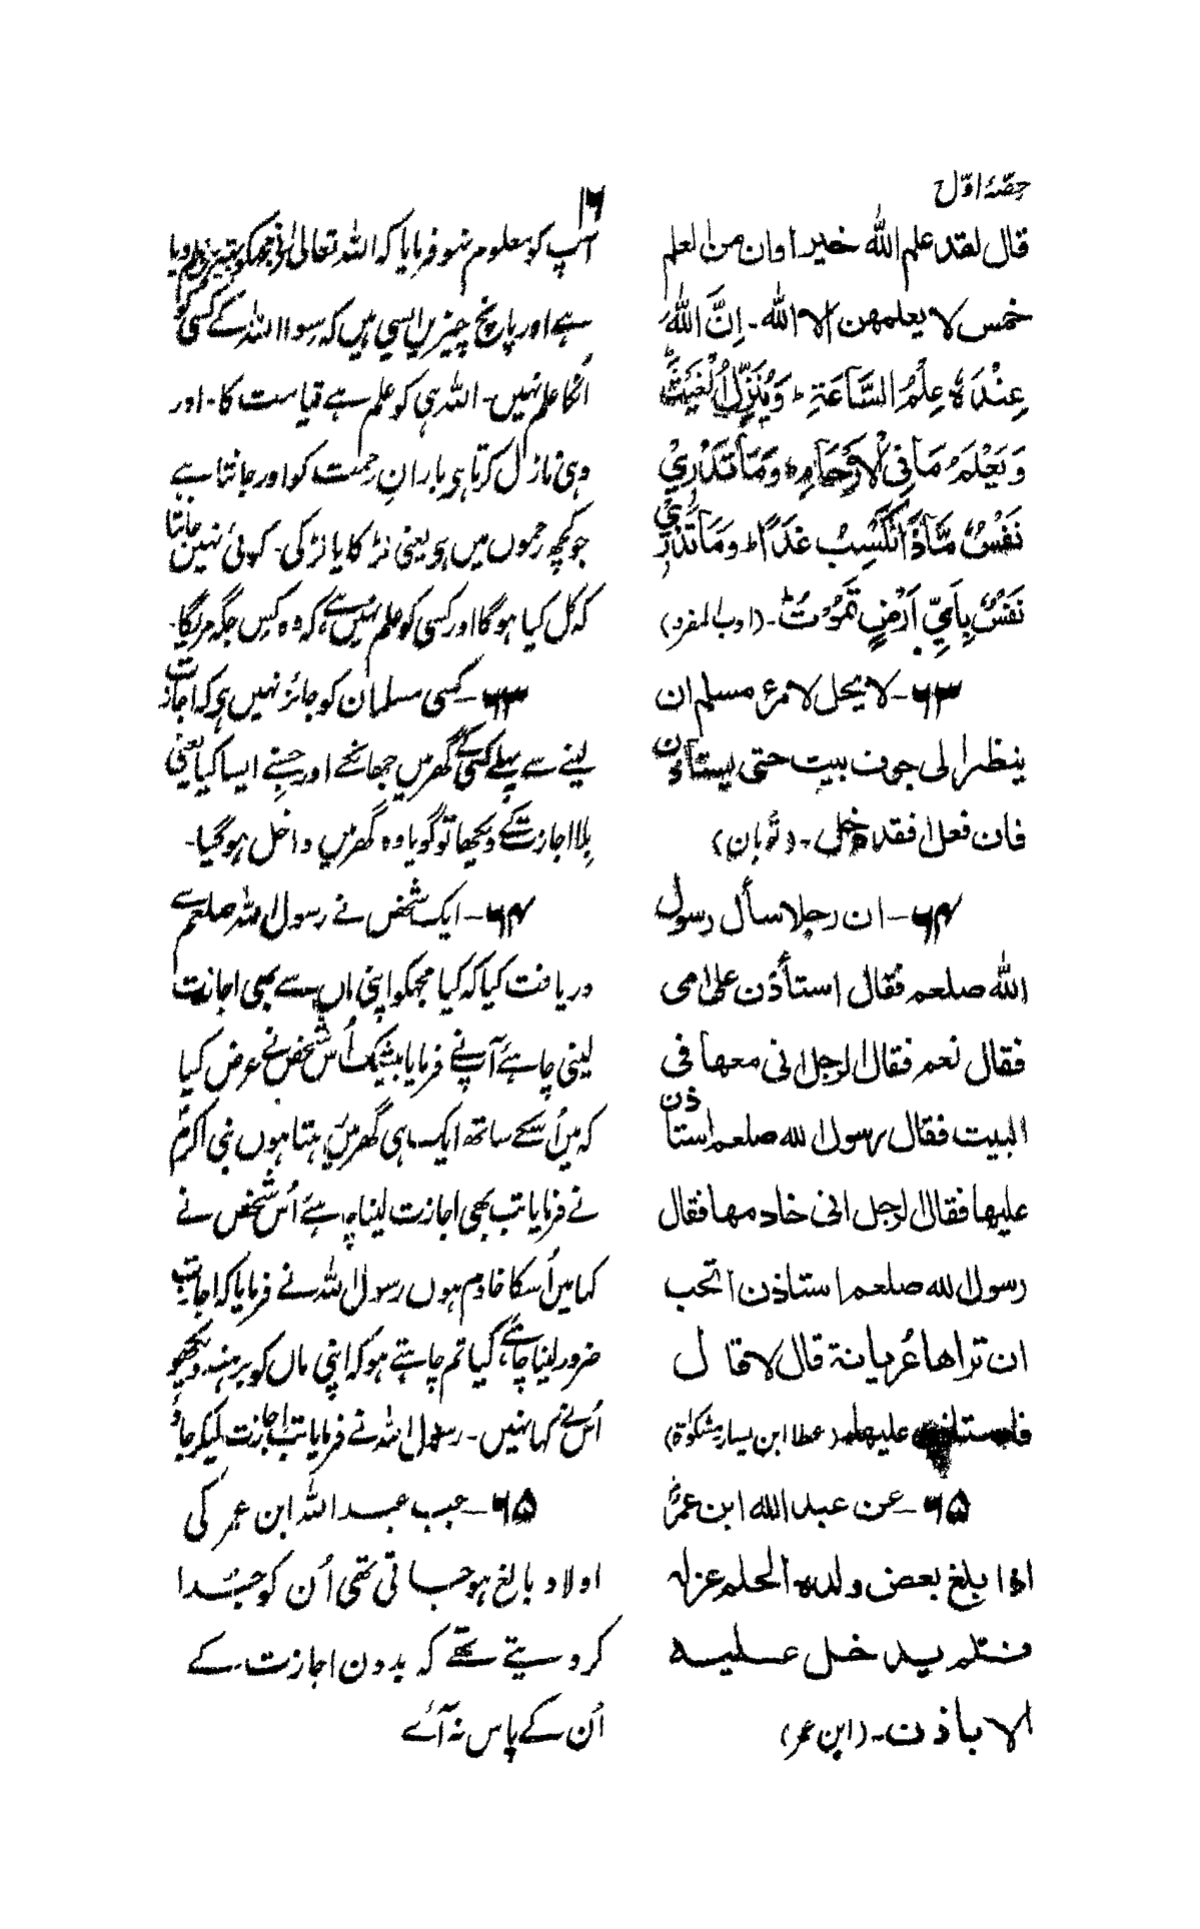 حصّۂ اوّل
۱۶
قال لقد علم الله خیرا وان من العلم
خمس لا یعلمهن الا الله ۔ اِنَّ اللّٰهَ
عِنْدَهٗ عِلْمُ السَّاعَةِ ۚ وَیُنَزِّلُ الْغَیْثَ ۚ
وَیَعْلَمُ مَا فِی الْاَرْحَامِ ؕ وَمَا تَدْرِیْ
نَفْسٌ مَّاذَا تَكْسِبُ غَدًا ؕ وَمَا تَدْرِیْ
نَفْسٌۢ بِاَیِّ اَرْضٍ تَمُوْتُ ؕ ۔ (ادب المفرد)
۶۳ ۔ لا یحل لامرء مسلم ان
ینظر الی جوف بیت حتی یستاذن
فان فعل فقد دخل ۔ (ثوبان)
۶۴ ۔ ان رجلا سأل رسول
الله صلعم فقال استأذن علی امی
فقال نعم فقال الرجل انی معها فی
البیت فقال رسول الله صلعم استاذن
علیها فقال الرجل انی خادمها فقال
رسول الله صلعم استاذن اتحب
ان تراها عُریانة قال لا قال
علیها (عطا ابن یسار مشکوٰة)
۶۵ ۔ عن عبد الله ابن عمرؓ
اذا بلغ بعض ولده الحلم عزله
فلم یدخل علیه
الا باذن ۔ (ابن عمر)
آپ کو معلوم نہو فرمایا کہ اللہ تعالی نے مجھکو بہتیرا علم دیا
ہے اور پانچ چیزیں ایسی ہیں کہ سوا اللہ کے کسی کو
اُنکا علم نہیں ۔ اللہ ہی کو علم ہے قیامت کا ۔ اور
وہی نازل کرتا ہی بارانِ رحمت کو اور جانتا ہے
جو کچھ رحموں میں ہی یعنی لڑکا یا لڑکی ۔ کوئی نہیں جانتا
کہ کل کیا ہوگا اور کسی کو علم نہیں ہے کہ وہ کس جگہ مریگا ۔
۶۳ ۔ کسی مسلمان کو جائز نہیں ہی کہ اجازت
لینے سے پہلے کسی کے گھر میں جھانکے اور جسنے ایسا کیا یعنی
بلا اجازت کے دیکھا تو گویا وہ گھر میں داخل ہوگیا ۔
۶۴ ۔ ایک شخص نے رسول اللہ صلعم سے
دریافت کیا کہ کیا مجھکو اپنی ماں سے بھی اجازت
لینی چاہئے آپنے فرمایا بیشک اُس شخص نے عرض کیا
کہ میں اُسکے ساتھ ایک ہی گھر میں رہتا ہوں نبی اکرمؐ
نے فرمایا تب بھی اجازت لینا چاہئے اُس شخص نے
کہا میں اُسکا خادم ہوں رسول اللہ نے فرمایا کہ اجازت
ضرور لینا چاہئے، کیا تم چاہتے ہو کہ اپنی ماں کو برہنہ دیکھو
اُس نے کہا نہیں ۔ رسول اللہ نے فرمایا تب اجازت لیکر جاؤ
۶۵ ۔ جب عبد اللہ ابن عمر کی
اولاد بالغ ہو جاتی تھی اُن کو جُدا
کر دیتے تھے کہ بدون اجازت کے
اُن کے پاس نہ آئے